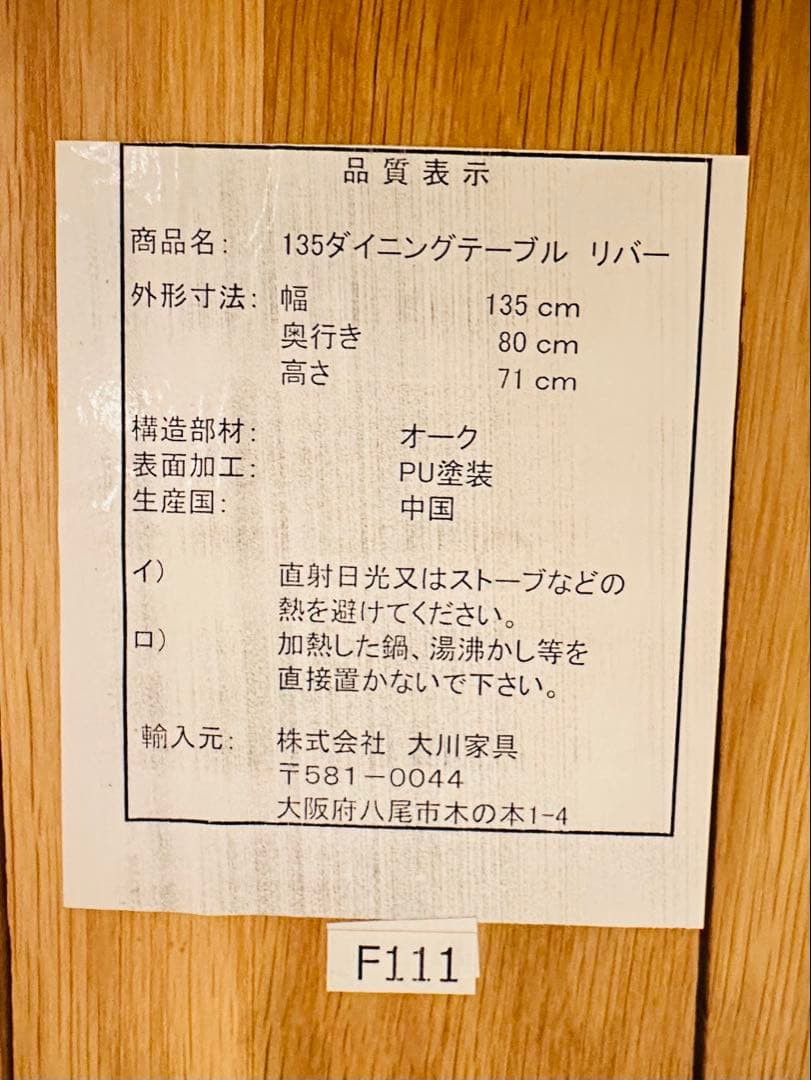 品質表示
商品名： 135ダイニングテーブル リバー
外形寸法： 幅 135 cm
奥行き 80 cm
高さ 71 cm
構造部材： オーク
表面加工： PU塗装
生産国： 中国
イ） 直射日光又はストーブなどの
熱を避けてください。
ロ） 加熱した鍋、湯沸かし等を
直接置かないで下さい。
輸入元： 株式会社 大川家具
〒581－0044
大阪府八尾市木の本1-4
F111